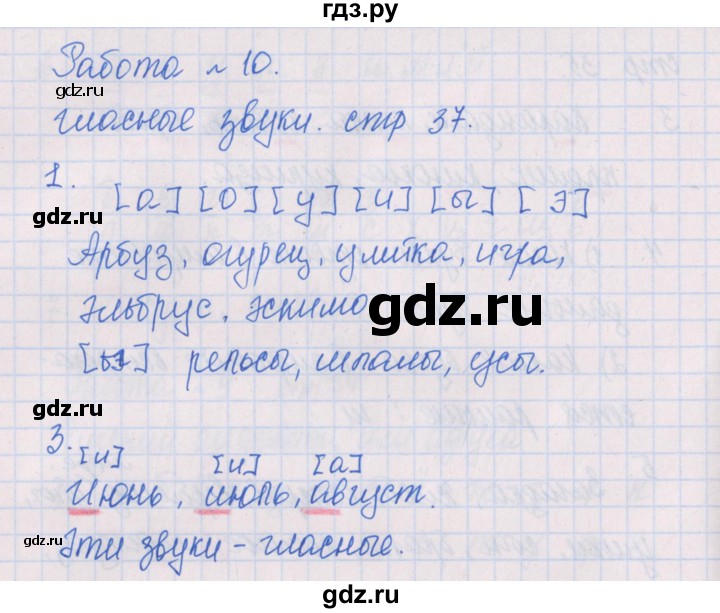 гдз.ру
Работа № 10.
гласные звуки. стр 37.
1.
[а] [о] [у] [и] [ы] [э]
Арбуз, огурец, улитка, игра,
Эльбрус, эскимо
[ы] рельсы, шпалы, усы.
3.
[и] [и] [а]
Июнь, июль, август.
Эти звуки - гласные.
gdz.ru
gdz.ru
gdz.ru
gdz.ru
gdz.ru
gdz.ru
gdz.ru
gdz.ru